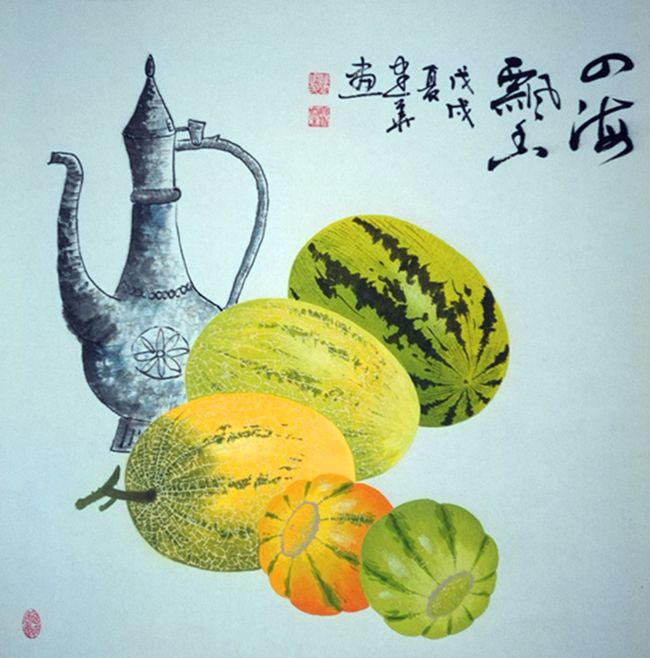 四海
飄香
戊戌
夏
建華
画